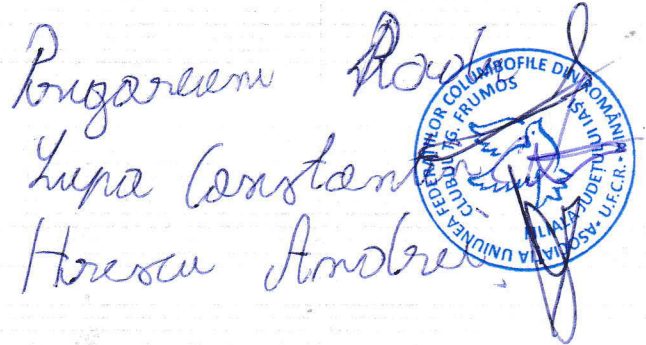 Prugoreanu Radu
Lupa Constantin
Hirescu Andrei
ASOCIAȚIA UNIUNEA FEDERAȚIILOR COLUMBOFILE DIN ROMÂNIA - U.F.C.R.
CLUBUL TG. FRUMOS
FILIALA JUDEȚULUI IAȘI